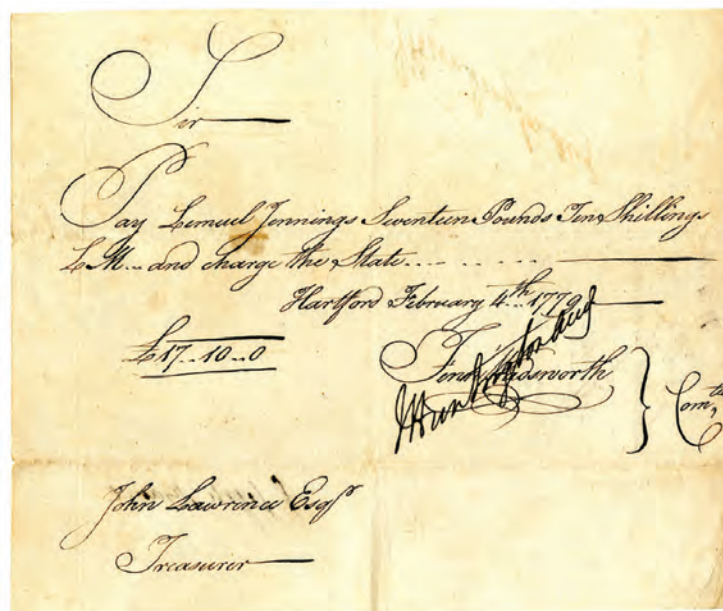 Sir
Pay Lemuel Jennings Seventeen Pounds Ten Shillings
L M... and charge the State.... .. . .. .
Hartford February 4th.. 1779
£17..10..0
Wadsworth } Com
John Lawrence Esqr
Treasurer